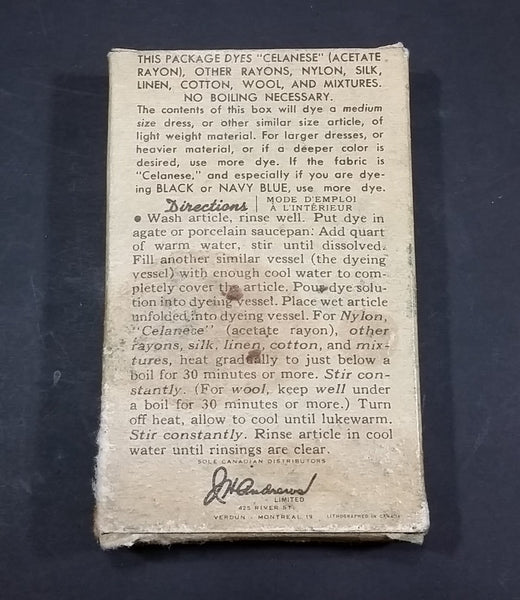 THIS PACKAGE DYES "CELANESE" (ACETATE
RAYON), OTHER RAYONS, NYLON, SILK,
LINEN, COTTON, WOOL, AND MIXTURES.
NO BOILING NECESSARY.
The contents of this box will dye a medium
size dress, or other similar size article, of
light weight material. For larger dresses, or
heavier material, or if a deeper color is
desired, use more dye. If the fabric is
"Celanese," and especially if you are dye-
ing BLACK or NAVY BLUE, use more dye.
Directions | MODE D'EMPLOI
À L'INTÉRIEUR
● Wash article, rinse well. Put dye in
agate or porcelain saucepan. Add quart
of warm water, stir until dissolved.
Fill another similar vessel (the dyeing
vessel) with enough cool water to com-
pletely cover the article. Pour dye solu-
tion into dyeing vessel. Place wet article
unfolded into dyeing vessel. For Nylon,
"Celanese" (acetate rayon), other
rayons, silk, linen, cotton, and mix-
tures, heat gradually to just below a
boil for 30 minutes or more. Stir con-
stantly. (For wool, keep well under
a boil for 30 minutes or more.) Turn
off heat, allow to cool until lukewarm.
Stir constantly. Rinse article in cool
water until rinsings are clear.
SOLE CANADIAN DISTRIBUTORS
J H Andrews
LIMITED
425 RIVER ST.
VERDUN - MONTREAL 19 LITHOGRAPHED IN CANADA